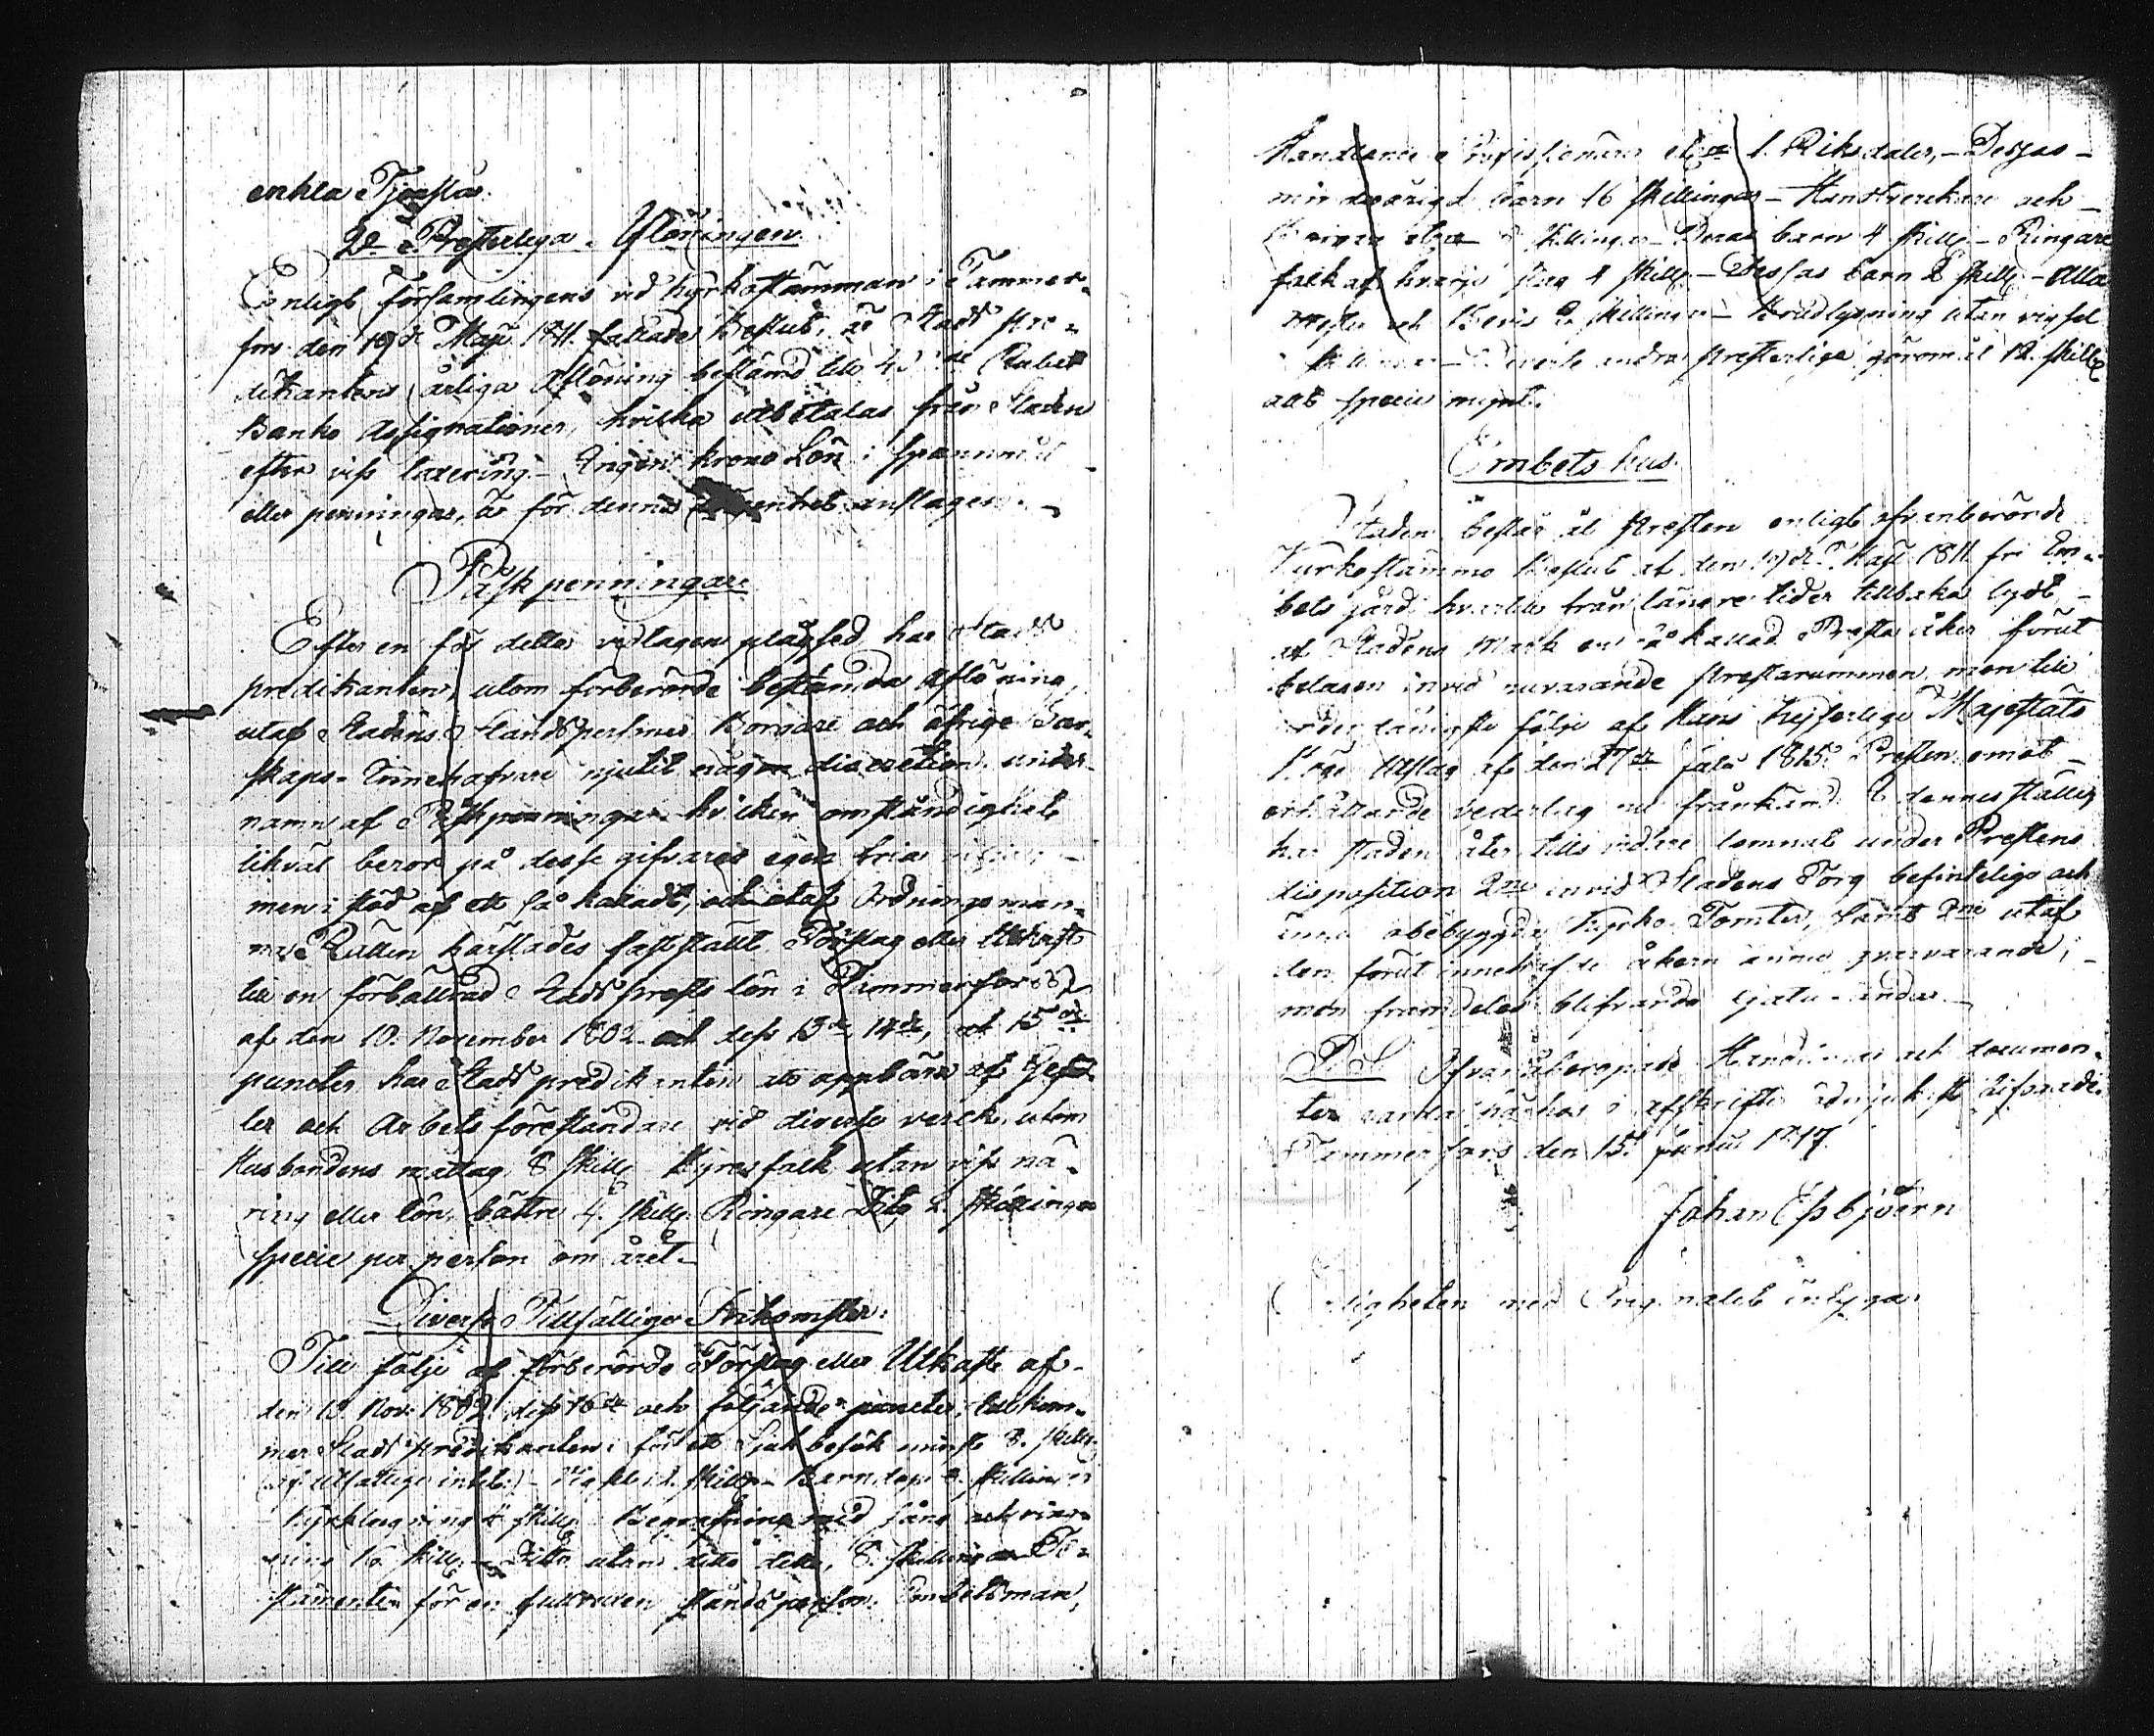 enkla Tjenster.
2o Presterliga Aflöningen.
Enligt Församlingens vid Kyrkostämman i Tammer-
fors den 19de Maji 1811 fattade Beslut, är Stads Pre-
dikantens årliga Aflöning bestämd till Rubel
Banko Assignationer, hvilka utbetalas från Staden
efter viss taxering. Ingen krono Lön i Spannmål
eller penningar, är för denna anslagen.
Påskpenningar
Efter en för detta vedtagen plägsed har Stads
predikanten, utom förberörde bestämda aflöning,
utaf Stadens Ståndspersoner Borgare och öfrige Bor-
skaps-Innehafvare njutit någon discretion under
namn af Påskpenningar hvilken omständighet
likväl beror på desse gifvares egen fria
men i stöd af ett så kalladt, och utaf Ordningsman-
nen Rätten härstädes fastställt Förslag eller Utkast
till en förbättrad Stads Prests lön i Tammerfors
af den 10. November 1802 och dess 13de 14de, och 15de
puncter har Stads predikanten att uppbära af Gesäl-
ler och Arbets föreståndare vid diverse verck, utom
Husbondens mattag 8 skillg Hyresfolk utan viss nä-
ring eller lön, bättre 4. skillg. Ringare Dito 2 skillingar
specie per person om året.
Diverse Tillfällige Inkomster.
Till följe af förberörde Förslag eller Utkast af
den 10. Nov. 1802 dess 16de och följande puncter, tillkom-
mer Stads predikanten: för ett Sjukbesök minst 8. skillg.
(af utfattige intet) skillg - Barndop 8. skillingar
Kyrktagning 4 skillg Begrafning med sång och ring-
ning 16 skillg - Ditto utan ditto ditto, 8. skillingar Te-
stamenten för en fullvuxen ståndsperson Embetsman,
Handlande Professioner etc 1. Riksdaler, - Dessas -
minderårigd barn 16 skillingar - Handtverckare och -
skillingar - Deras barn 4 skillg - Ringare
folk af hvarje slag 4 skillg - Dessas barn 2 skillg - Alla
och Bevis 2. skillingar - Brudlysning utan vigsel
skillingar - Diverse andra presterlige göromål 12. skillg
allt specie mynt.
Embets hus.
Staden bestås åt Presten enligt ofvanberörde
Kyrkostämmo Beslut af den 19de Maji 1811 fri Em-
bets gård hvartill från längre tider tillbaka lydt -
af Stadens Mark en så kallad Prästa åker förut
belägen invid nuvarande Prestarummen men till
följe af Hans Kejserliga Majestäts
Höga Utslag af den 27de Julii 1815. Presten emot -
erhållande vederlag nu frånkänd. I dennes ställe
har staden åter tills vidare lemnat under Prestens
disposition 2ne invid Stadens Torg befinteliga och
ännu obebyggda Kyrko Tomter, samt 2ne utaf
den förut innehafde åkern ännu qvarvarande,
men framdeles blifvande gatu-ändar.
P.S. Ofvanåberopade Handlingar och documen-
ter i afskrifter
Tammerfors den 15. Junii 1817.
Johan Essbjörn
ligheten med Originalet intygar